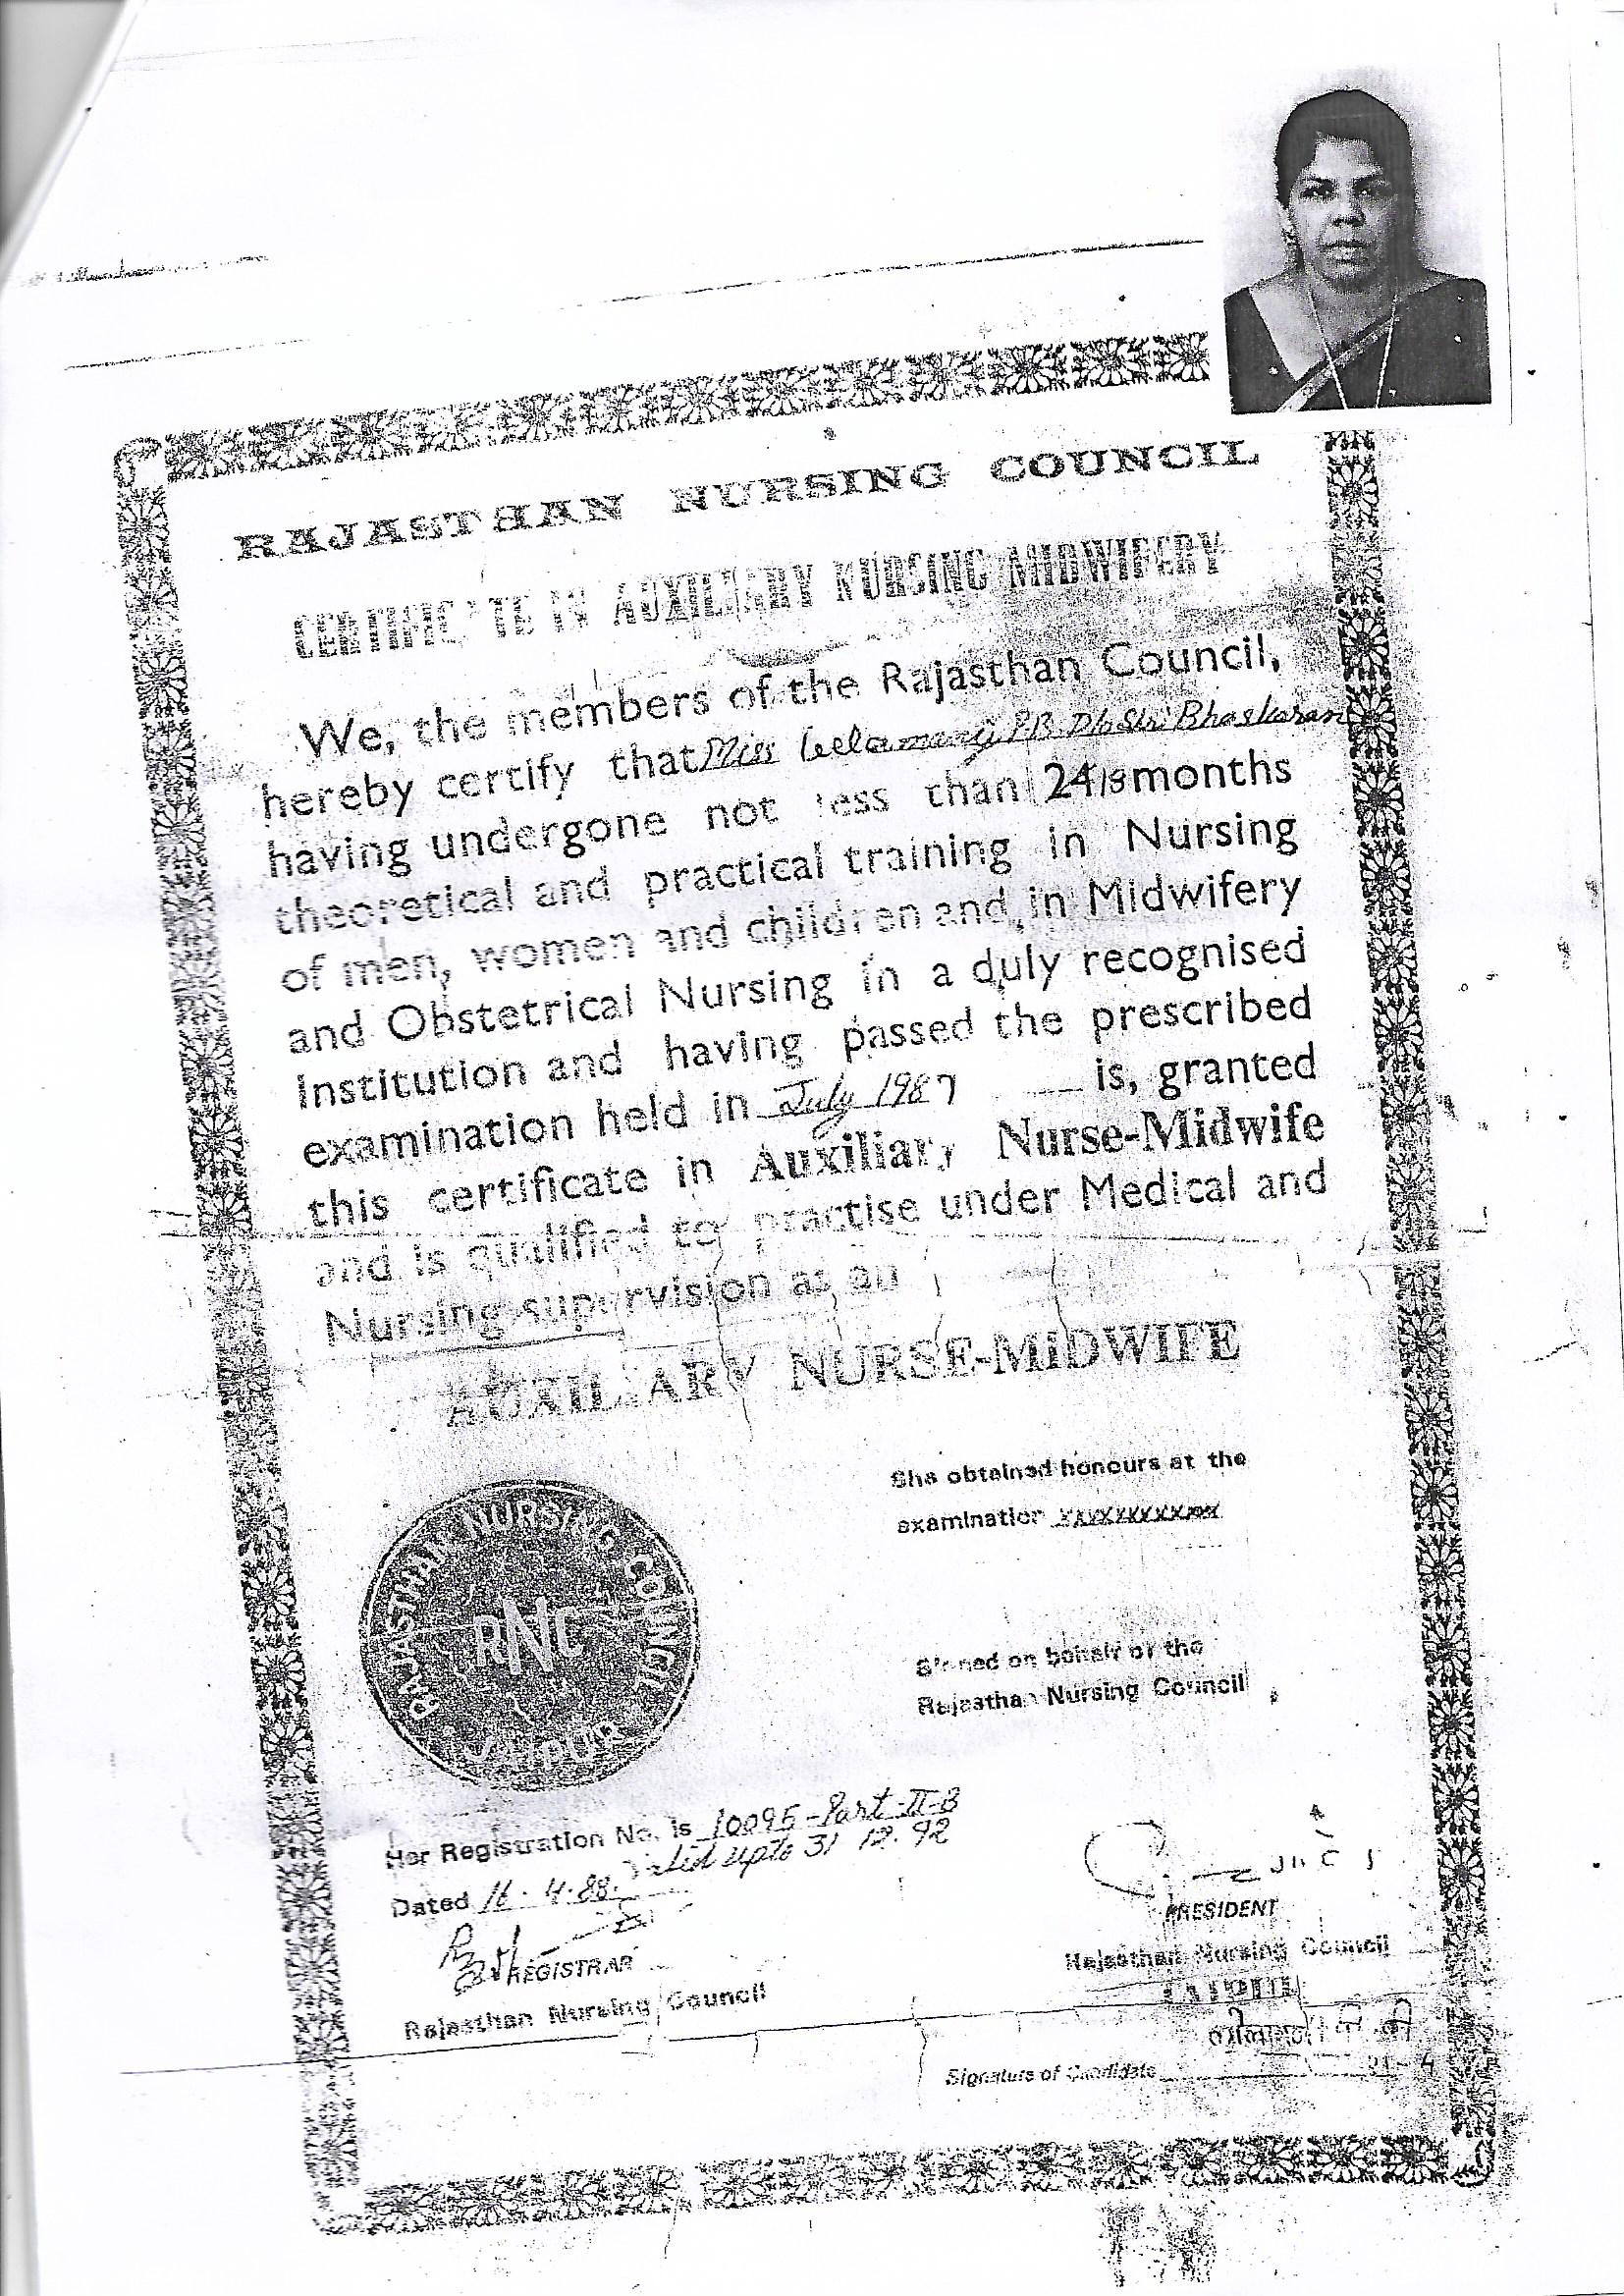 RAJASTHAN NURSING COUNCIL
CERTIFICATE IN AUXILIARY NURSING MIDWIFERY
We, the members of the Rajasthan Council,
hereby certify that Miss Leelamany P.B. D/o Shri Bhaskaran
having undergone not less than 24/18 months
theoretical and practical training in Nursing
of men, women and children and in Midwifery
and Obstetrical Nursing in a duly recognised
institution and having passed the prescribed
examination held in July 1987 is, granted
this certificate in Auxiliary Nurse-Midwife
and is qualified to practise under Medical and
Nursing supervision as an
AUXILIARY NURSE-MIDWIFE
She obtained honours at the
examination xxxxxxxxxxx
RAJASTHAN NURSING COUNCIL
RNC
JAIPUR
Signed on behalf of the
Rajasthan Nursing Council
Her Registration No. is 10095-Part-II-B
Valid upto 31.12.92
Dated 16.4.88.
REGISTRAR
Rajasthan Nursing Council
PRESIDENT
Rajasthan Nursing Council
JAIPUR
Signature of Candidate